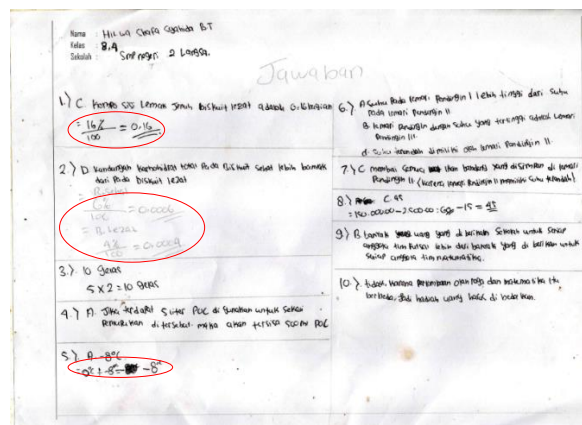 Nama : Hilwa Shafa Syahida BT
Kelas : 8.A
Sekolah : Smp negeri 2 Langsa.
Jawaban
1.) C. Komposisi Lemak Jenuh biskuit lezat adalah 0,16 bagian
= 16% / 100 = 0,16
2.) D. Kandungan karbohidrat total Pada Biskuit Sehat lebih banyak
dari Pada biskuit lezat
= 0,0006
= B. Lezat
= 0,0009
3.) 10 gelas
5 x 2 = 10 gelas
4.) A. Jika terdapat 5 liter POC di gunakan untuk sekali
maka akan tersisa 500 ml POC
5.) A -8°C
-8°
6.) A Suhu Pada lemari Pendingin I lebih tinggi dari suhu
Pada lemari Pendingin II
B. lemari Pendingin dengan suhu yang tertinggi adalah lemari
Pendingin III.
d. Suhu terendah dimiliki oleh lemari Pendingin II.
7.) C membai semua ikan bandeng yang disimpan di lemari
Pendingin II. (karena lemari Pendingin II memiliki suhu terendah)
8.) C. 45
= 150.000.00 - 2.500.00 : 60 - 15 = 45
9.) B banyak uang yang di berikan Sekolah untuk setiap
anggota tim futsal lebih dari banyak yang di berikan untuk
setiap anggota tim matematika.
10.) tidak, karena perlombaan olahraga dan matematika itu
berbeda, Jadi hadiah uang harus di bedakan.